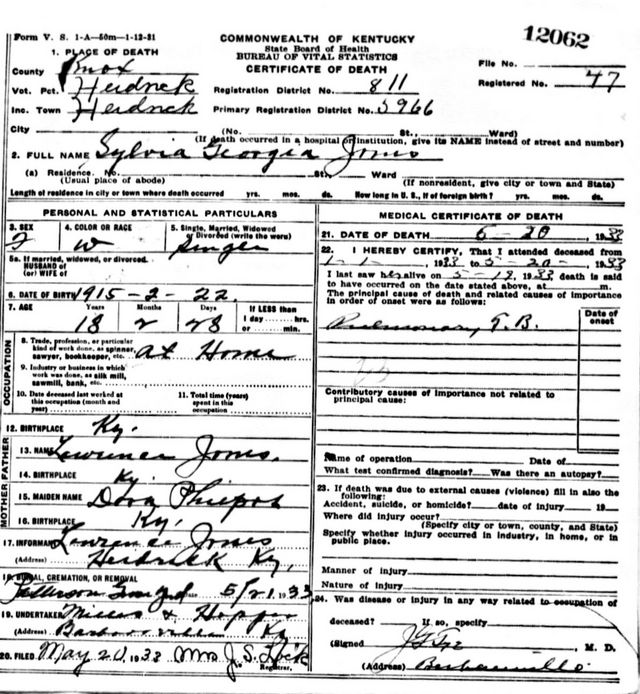 Form V. S. 1-A—50m—1-12-31
12062
COMMONWEALTH OF KENTUCKY
State Board of Health
BUREAU OF VITAL STATISTICS
CERTIFICATE OF DEATH
1. PLACE OF DEATH
County Knox
Vot. Pct. Heidrick
Inc. Town Heidrick
Registration District No. 811
Primary Registration District No. 5966
File No.
Registered No. 47
City (No. St., Ward)
(If death occurred in a hospital or institution, give its NAME instead of street and number)
2. FULL NAME Sylvia Georgia Jones
(a) Residence. No. St., Ward
(Usual place of abode) (If nonresident, give city or town and State)
Length of residence in city or town where death occurred yrs. mos. ds. How long in U. S., if of foreign birth? yrs. mos. ds.
PERSONAL AND STATISTICAL PARTICULARS
3. SEX
F
4. COLOR OR RACE
W
5. Single, Married, Widowed
or Divorced (write the word)
Single
5a. If married, widowed, or divorced.
HUSBAND of
(or) WIFE of
6. DATE OF BIRTH 1915-2-22
7. AGE Years Months Days If LESS than
1 day hrs.
or min.
18 2 28
OCCUPATION
8. Trade, profession, or particular
kind of work done, as spinner,
sawyer, bookkeeper, etc. at Home
9. Industry or business in which
work was done, as silk mill,
sawmill, bank, etc.
10. Date deceased last worked at
this occupation (month and
year)
11. Total time (years)
spent in this
occupation
12. BIRTHPLACE Ky.
FATHER
13. NAME Lawrence Jones
14. BIRTHPLACE Ky.
MOTHER
15. MAIDEN NAME Dora
16. BIRTHPLACE Ky.
17. INFORMANT Lawrence Jones
(Address) Heidrick Ky.
18. BURIAL, CREMATION, OR REMOVAL
Patterson 5/21 1933
19. UNDERTAKER
(Address) Barbourville Ky
20. FILED May 20 1933 Mrs J. S. Lock
Registrar.
MEDICAL CERTIFICATE OF DEATH
21. DATE OF DEATH 5-20, 1933
22. I HEREBY CERTIFY, That I attended deceased from
1-1-, 1933 to 5-20-, 1933
I last saw her alive on 5-19, 1933 death is said
to have occurred on the date stated above, at m.
The principal cause of death and related causes of importance
in order of onset were as follows:
Date of
onset
Pulmonary T.B.
Contributory causes of importance not related to
principal cause:
Name of operation Date of
What test confirmed diagnosis? Was there an autopsy?
23. If death was due to external causes (violence) fill in also the
following:
Accident, suicide, or homicide? date of injury 19
Where did injury occur?
(Specify city or town, county, and State)
Specify whether injury occurred in industry, in home, or in
public place.
Manner of injury
Nature of injury
24. Was disease or injury in any way related to occupation of
deceased? If so, specify
(Signed) M. D.
(Address) Barbourville